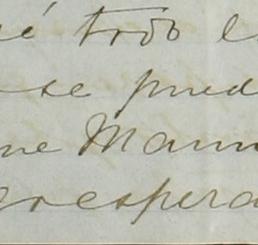 é todo l
se pued
me Manu
despera